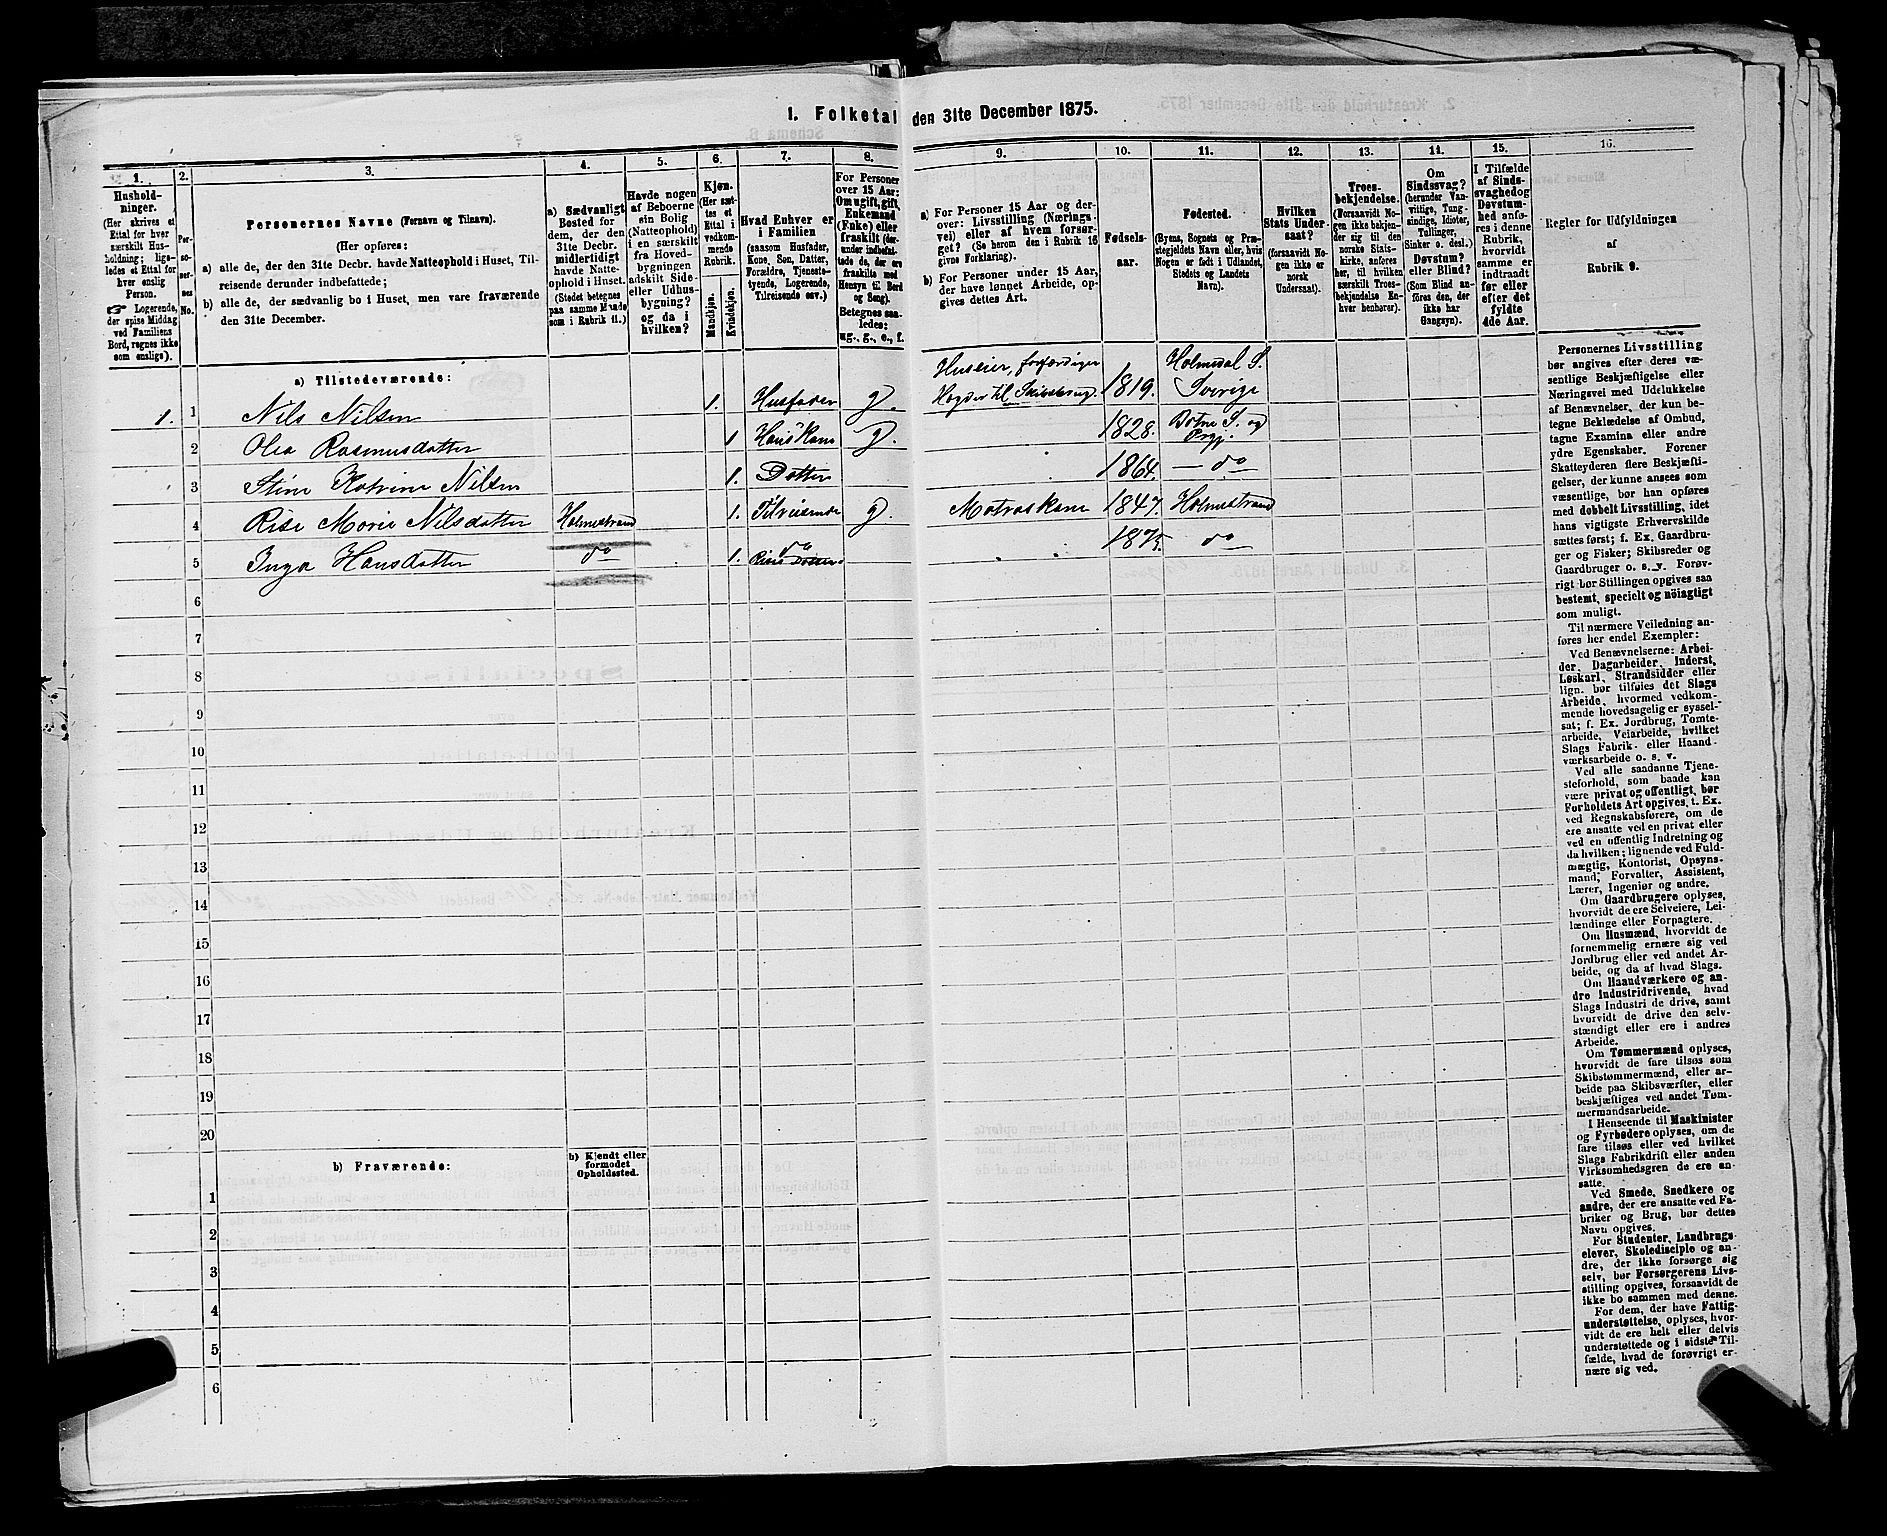 1. Folketal den 31te December 1875.
1.
2.
3.
4.
5.
6.
7.
8.
9.
10.
11.
12.
13.
14.
15.
16.
Hushold-
ninger.
(Her skrives et
Ettal for hver
særskilt Hus-
holdning; lige-
ledes et Ettal for
hver enslig
Person.
☞ Logerende,
der spise Middag
ved Familiens
Bord, regnes ikke
som enslige).
Per-
so-
ner-
nes
No.
Personernes Navne (Fornavn og Tilnavn).
(Her opføres:
a) alle de, der den 31te Decbr. havde Natteophold i Huset, Til-
reisende derunder indbefattede;
b) alle de, der sædvanlig bo i Huset, men vare fraværende
den 31te December.
a) Sædvanligt
Bosted for
dem, der den
31te Decbr.
midlertidigt
havde Natte-
ophold i Huset.
(Stedet betegnes
paa samme Maade
som i Rubrik 11.)
Havde nogen
af Beboerne
sin Bolig
(Natteophold)
i en særskilt
fra Hoved-
bygningen
adskilt Side-
eller Udhus-
bygning?
og da i
hvilken?
Kjøn.
(Her sæt-
tes et
Ettal i
vedkom-
mende
Rubrik.
Mandkjøn.
Kvindekjøn.
Hvad Enhver er
i Familien
(saasom Husfader,
Kone, Søn, Datter,
Forældre, Tjeneste-
tyende, Logerende,
Tilreisende osv.)
For Personer
over 15 Aar:
Om ugift, gift,
Enkemand
(Enke) eller
fraskilt (der-
under indbefat-
tede de, der ere
fraskilte med
Hensyn til Bord
og Seng).
Betegnes saa-
ledes:
ug., g., e., f.
a) For Personer 15 Aar og der-
over: Livsstilling (Nærings-
vei) eller af hvem forsør-
get? (Se herom den i Rubrik 16
givne Forklaring).
b) For Personer under 15 Aar,
der have lønnet Arbeide, op-
gives dettes Art.
Fødsels-
aar.
Fødested.
(Byens, Sognets og Præ-
stegjeldets Navn eller, hvis
Nogen er født i Udlandet,
Stedets og Landets
Navn).
Hvilken
Stats Under-
saat?
(forsaavidt No-
gen ikke er
norsk
Undersaat).
Troes-
bekjendelse.
(Forsaavidt No-
gen ikke bekjen-
der sig til den
norske Stats-
kirke, anføres
her, til hvilken
særskilt Troes-
bekjendelse En-
hver henhører).
Om
Sindssvag?
(herunder Van-
vittige, Tung-
sindige, Idioter,
Tullinger,
Sinker o. desl.)
Døvstum?
eller Blind?
(Som Blind an-
føres den, der
ikke har
Gangsyn).
I Tilfælde
af Sinds-
svaghed og
Døvstum-
hed anfø-
res i denne
Rubrik,
hvorvidt
samme er
indtraadt
før eller
efter det
fyldte
4de Aar.
Regler for Udfyldningen
af
Rubrik 9.
a) Tilstedeværende:
1. 1 Nils Nilsen 1. Husfader g. Huseier, forfærdiger Høgder til Skibsbrug. 1819. Holmedal S. Sverige
2 Olea Rasmusdatter 1 Hans Kone g. 1828. Botne S. og Prgj.
3 Stine Katrine Nilsen 1. Datter 1864. — do
4 Rise Marie Nilsdatter Holmestrand 1. Tilreisende g. Matros kone 1847. Holmestrand
5 Inga Hansdatter do 1. do Rises Datter 1875. do
6
7
8
9
10
11
12
13
14
15
16
17
18
19
20
b) Fraværende:
b) Kjendt eller
formodet
Opholdssted.
1
2
3
4
5
6
Personernes Livsstilling
bør angives efter deres væ-
sentlige Beskjæftigelse eller
Næringsvei med Udelukkelse
af Benævnelser, der kun be-
tegne Beklædelse af Ombud,
tagne Examina eller andre
ydre Egenskaber. Forener
Skatteyderen flere Beskjæfti-
gelser, der kunne ansees som
væsentlige, bør han opføres
med dobbelt Livsstilling, idet
hans vigtigste Erhvervskilde
sættes først; f. Ex. Gaardbru-
ger og Fisker; Skibsreder og
Gaardbruger o. s. v. Forøv-
rigt bør Stillingen opgives saa
bestemt, specielt og nöiagtigt
som muligt.
Til nærmere Veiledning an-
føres her endel Exempler:
Ved Benævnelserne: Arbei-
der, Dagarbeider, Inderst,
Løskarl, Strandsidder eller
lign. bør tilføies det Slags
Arbeide, hvormed vedkom-
mende hovedsagelig er syssel-
sat; f. Ex. Jordbrug, Tomte-
arbeide, Veiarbeide, hvilket
Slags Fabrik- eller Haand-
værksarbeide o. s. v.
Ved alle saadanne Tjene-
steforhold, som baade kan
være privat og offentligt, bør
Forholdets Art opgives, t. Ex.
ved Regnskabsførere, om de
ere ansatte ved en privat eller
ved en offentlig Indretning og
da hvilken; lignende ved Fuld-
mægtig, Kontorist, Opsyns-
mand, Forvalter, Assistent,
Lærer, Ingeniør og andre.
Om Gaardbrugere oplyses,
hvorvidt de ere Selveiere, Lei-
lændinge eller Forpagtere.
Om Husmænd, hvorvidt de
fornemmelig ernære sig ved
Jordbrug eller ved andet Ar-
beide, og da af hvad Slags.
Om Haandværkere og an-
dre Industridrivende, hvad
Slags Industri de drive, samt
hvorvidt de drive den selv-
stændigt eller ere i andres
Arbeide.
Om Tømmermænd oplyses,
hvorvidt de fare tilsøs som
Skibstømmermænd, eller ar-
beide paa Skibsværfter, eller
beskjæftiges ved andet Tøm-
mermandsarbeide.
I Henseende til Maskinister
og Fyrbødere oplyses, om de
fare tilsøs eller ved hvilket
Slags Fabrikdrift eller anden
Virksomhedsgren de ere an-
satte.
Ved Smede, Snedkere og
andre, der ere ansatte ved Fa-
briker og Brug, bør dettes
Navn opgives.
For Studenter, Landbrugs-
elever, Skoledisciple og an-
dre, der ikke forsørge sig
selv, bør Forsørgerens Livs-
stilling opgives, forsaavidt de
ikke bo sammen med denne.
For dem, der have Fattig-
understøttelse, oplyses, hvor-
vidt de ere helt eller delvis
understøttede og i sidste Til-
fælde, hvad de forøvrigt er-
nære sig ved.